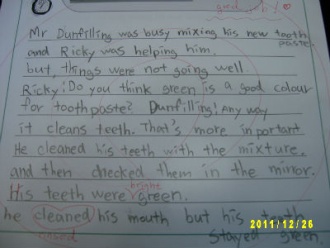 good job
Mr Dunfilling was busy mixing his new tooth paste
and Ricky was helping him.
but, things were not going well
Ricky: Do you think green is a good colour
for toothpaste? Dunfilling: Any way
it cleans teeth. That's more inportant
He cleaned his teeth with the mixture
and then checked them in the mirror.
bright
His teeth were green.
he cleaned his mouth but his teeth
stayed green
2011/12/26